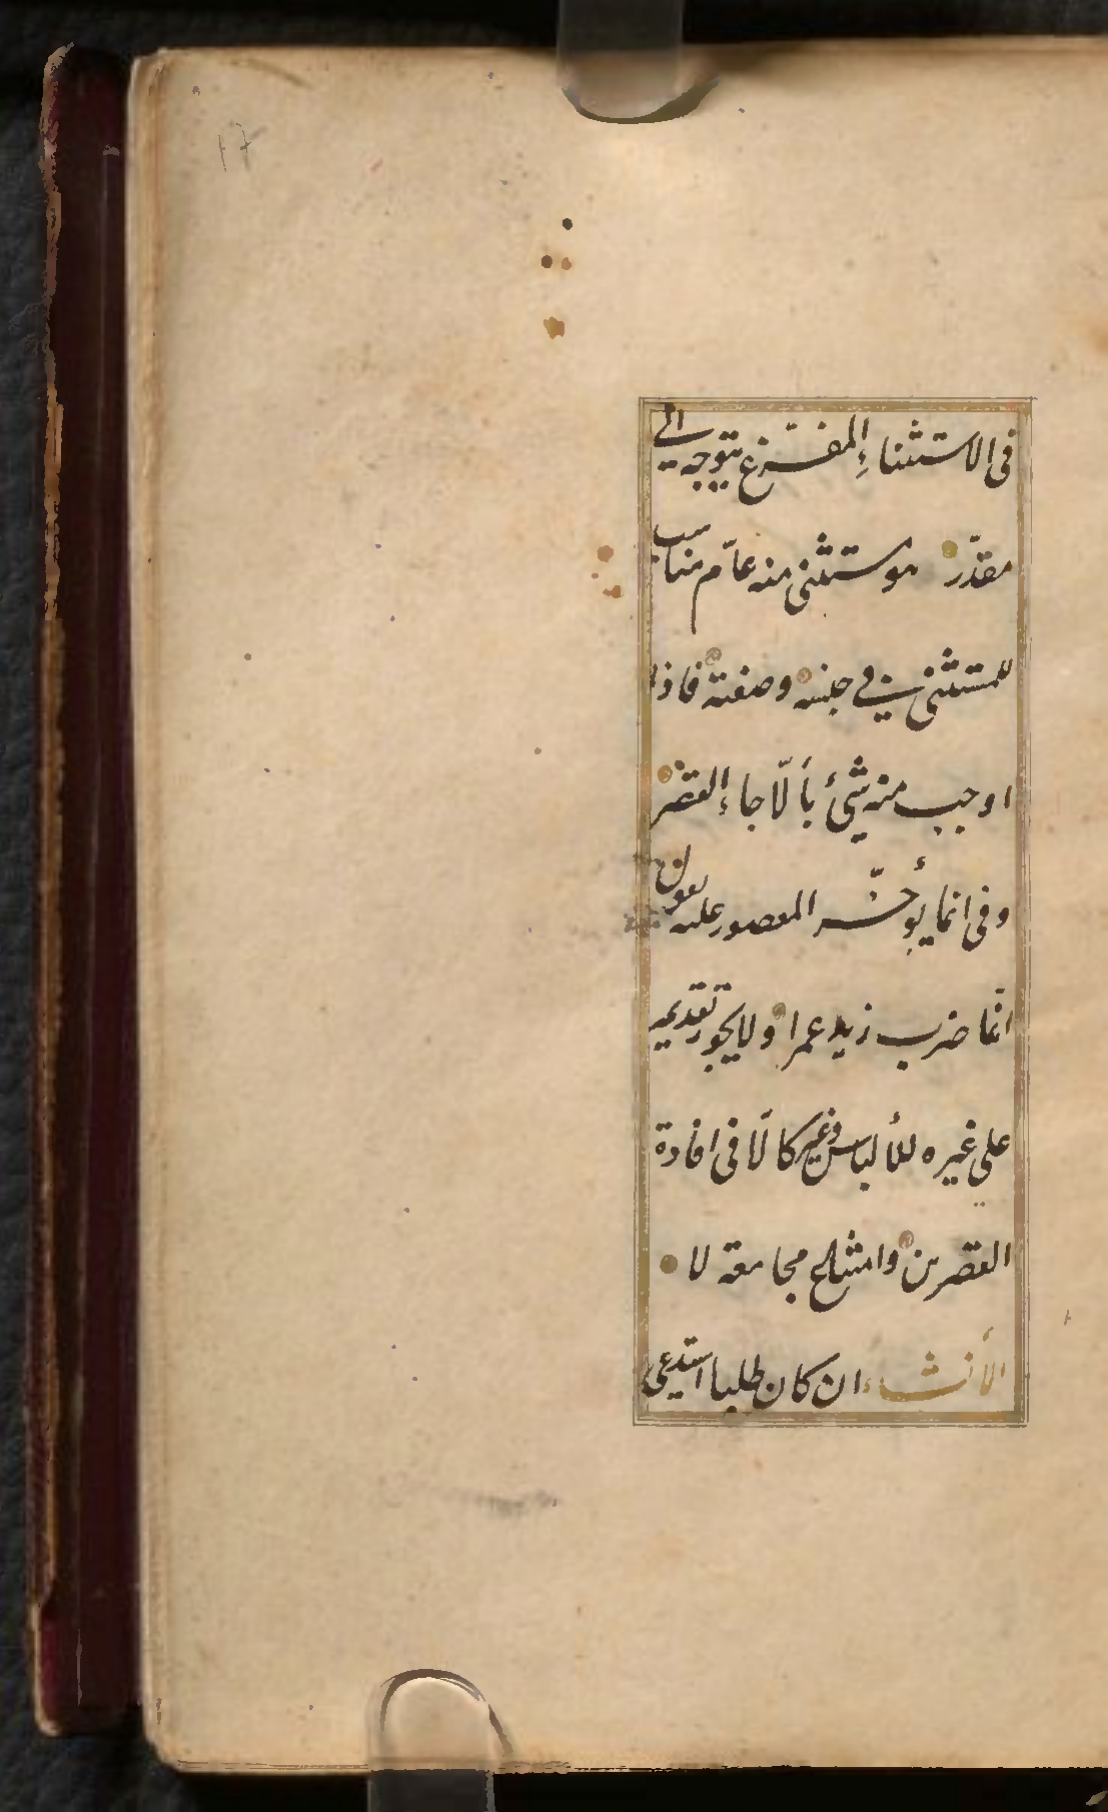 ١٧
في الاستثناء المفرّغ يتوجه الى
مقدّر هو مستثنى منه عامّ مناسب
للمستثنى في جنسه وصفته فاذا
اوجب منه شئ بألّا جاء القصر
وفي انما يؤخّر المقصور عليه تقول
انّما ضرب زيد عمرا ولا يجوز تقديمه
على غيره للألباس وغير كالّا في افادة
القصرين وامتناع مجامعة لا
الأنشاء ان كان طلبا استدعى